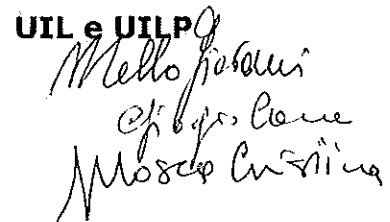 UIL e UILP
Mello Giovanni
Mosca Cristina